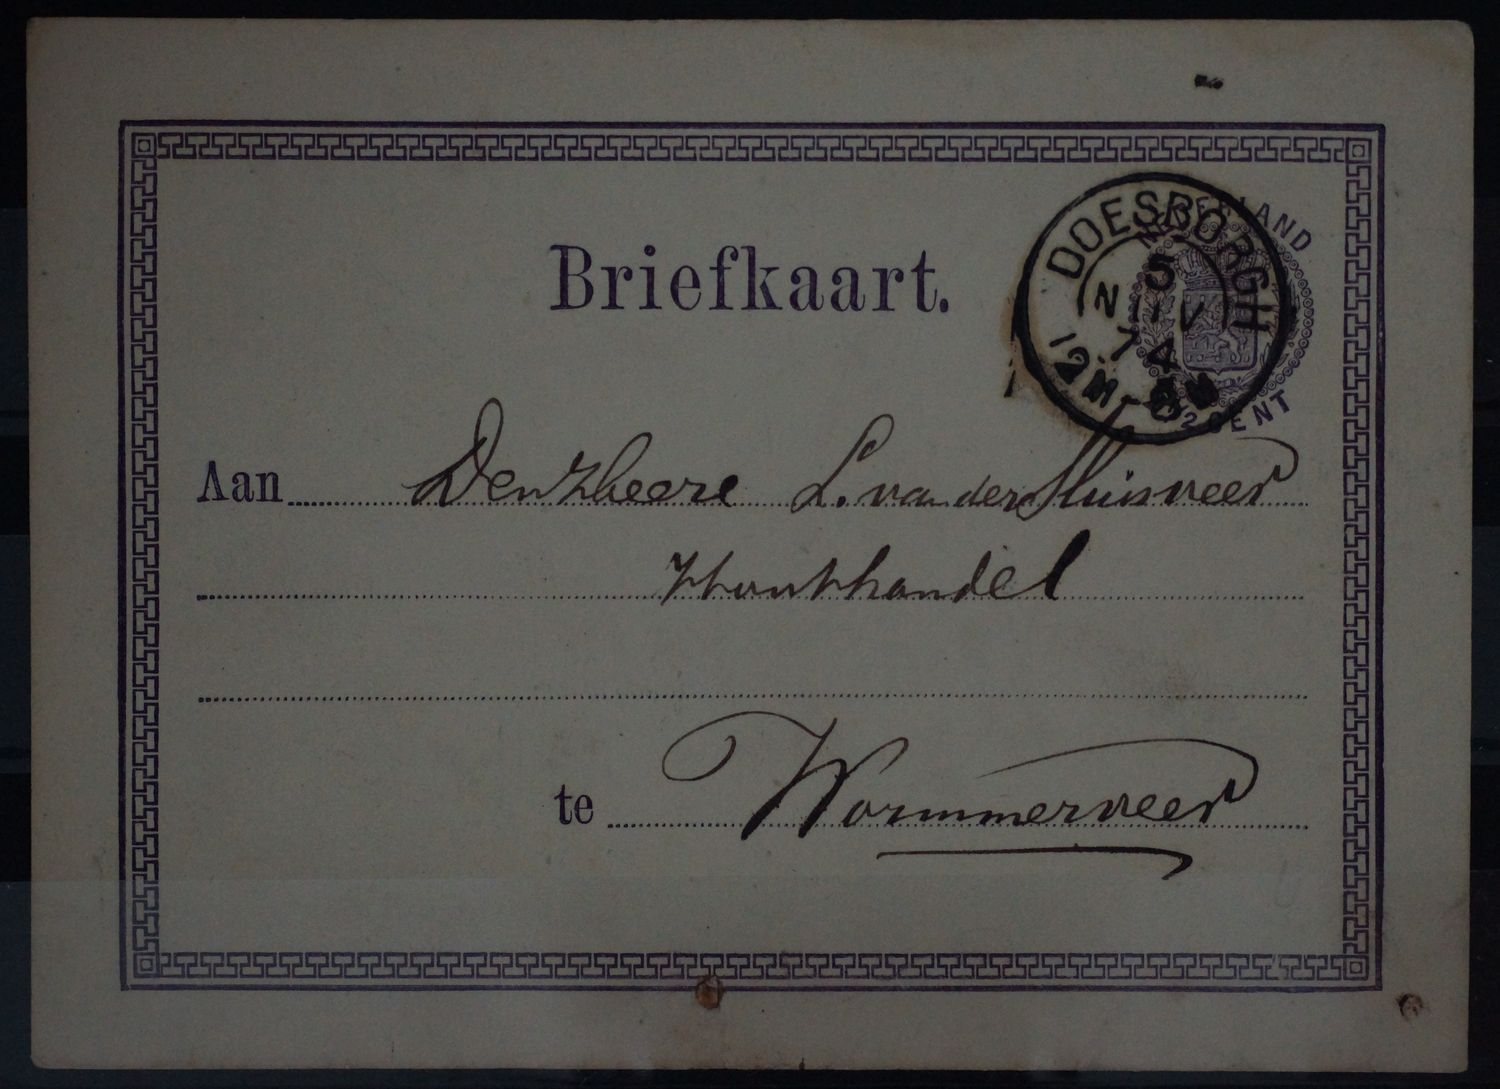 Briefkaart.
NEDERLAND
DOESBORGH
5
NOV
74
12M-8M
2 CENT
Aan Den Heere L. van der Sluisveer
Houthandel
te Wormerveer